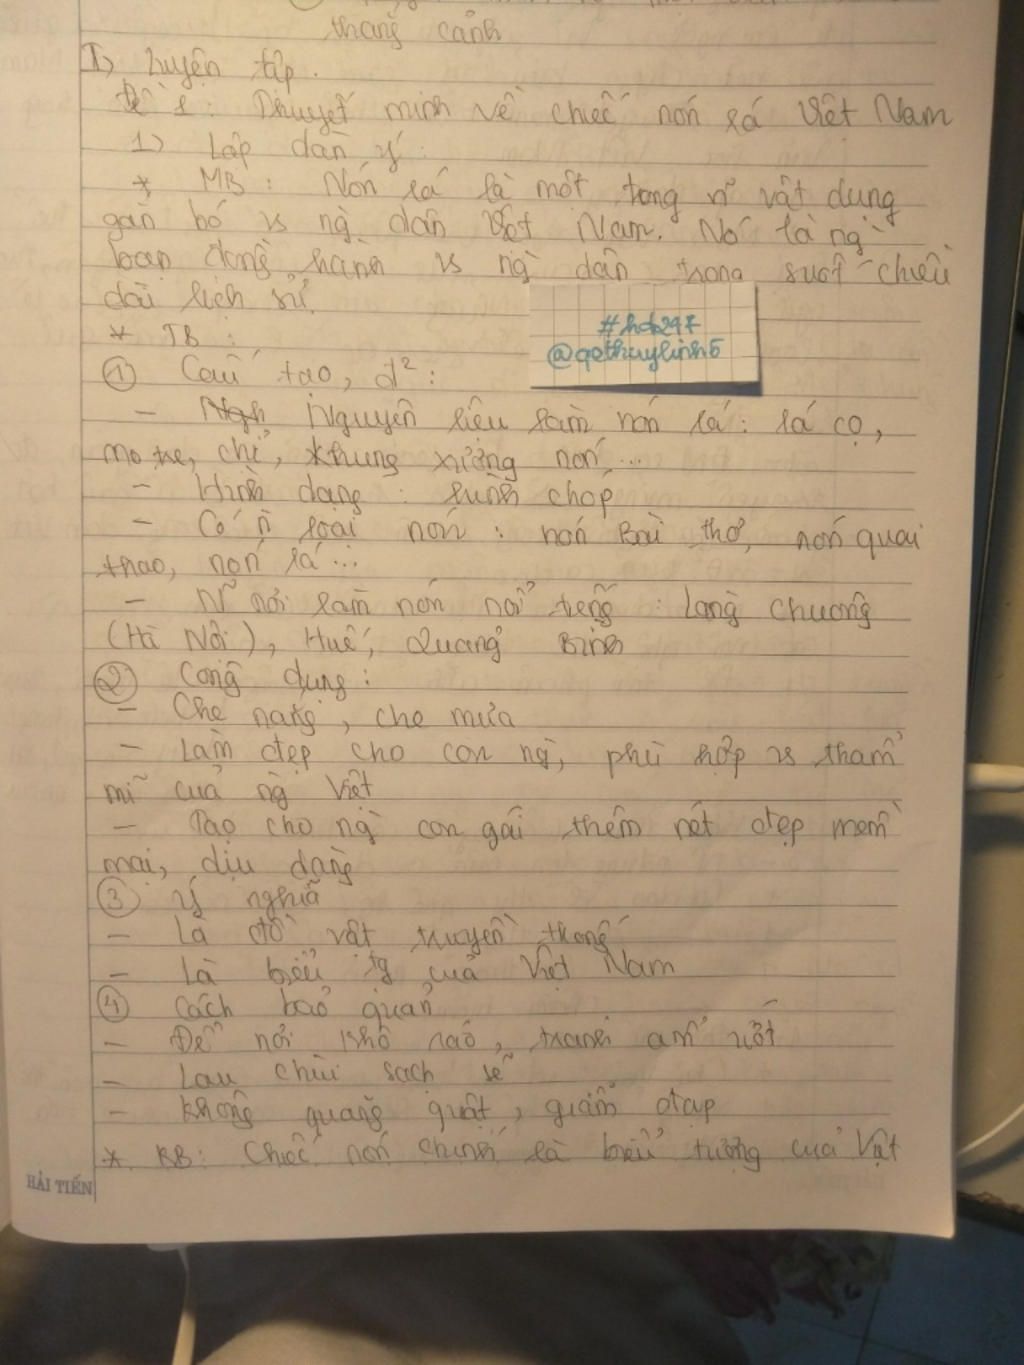 thắng cảnh
I) Luyện tập.
Đề 1: Thuyết minh về chiếc nón lá Việt Nam
1) Lập dàn ý:
* MB: Nón lá là một trong n~ vật dụng
gắn bó vs ng` dân Việt Nam. Nó là ng`
bạn đồng hành vs ng` dân trong suốt chiều
dài lịch sử.
#hdb247
@qethuylinh5
* TB:
① Cấu tạo, đ²:
- Nguyên liệu làm nón lá: lá cọ,
mo tre, chỉ, khung xương nón,...
- Hình dạng: hình chóp
- Có n` loại nón: nón Bài thơ, nón quai
thao, nón lá...
- N~ nơi làm nón nổi tiếng: Làng Chuông
(Hà Nội), Huế, Quảng Bình
② Công dụng:
- Che nắng, che mưa
- Làm đẹp cho con ng`, phù hợp vs thẩm
mĩ của ng` Việt
- Tạo cho ng` con gái thêm nét đẹp mềm
mại, dịu dàng
③ Ý nghĩa
- Là đồ vật truyền thống
- Là biểu tg của Việt Nam
④ Cách bảo quản
- Để nơi khô ráo, tránh ẩm ướt
- Lau chùi sạch sẽ
- Không quăng quật, giẫm đạp
* KB: Chiếc nón chính là biểu tượng của Việt
HẢI TIẾN